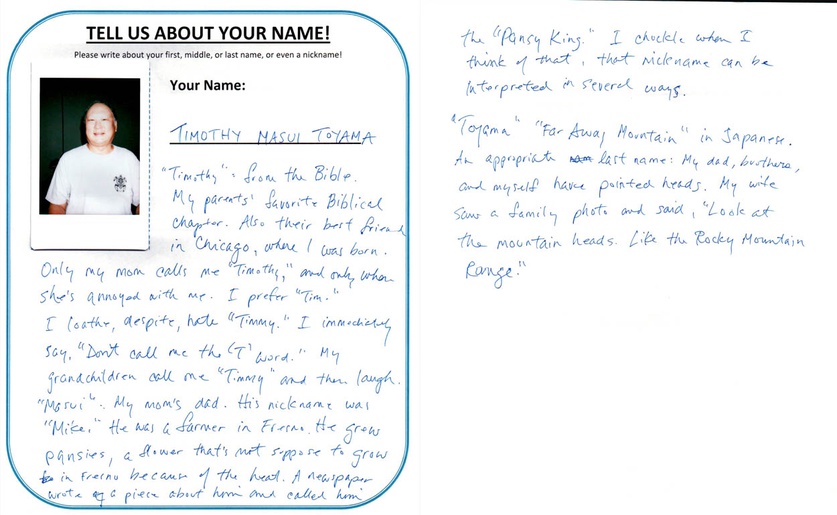 TELL US ABOUT YOUR NAME!
Please write about your first, middle, or last name, or even a nickname!
Your Name:
TIMOTHY MASUI TOYAMA
"Timothy": from the Bible.
My parents' favorite Biblical
chapter. Also their best friend
in Chicago, where I was born.
Only my mom calls me "Timothy," and only when
she's annoyed with me. I prefer "Tim."
I loathe, despite, hate "Timmy." I immediately
say, "Don't call me the 'T' word." My
grandchildren call me "Timmy" and then laugh.
"Masui": My mom's dad. His nickname was
"Mike." He was a farmer in Fresno. He grew
pansies, a flower that's not suppose to grow
in Fresno because of the heat. A newspaper
wrote a piece about him and called him
the "Pansy King." I chuckle when I
think of that, that nickname can be
interpreted in several ways.
"Toyama" "Far Away Mountain" in Japanese.
An appropriate last name: My dad, brothers,
and myself have pointed heads. My wife
saw a family photo and said, "Look at
the mountain heads. Like the Rocky Mountain
Range."